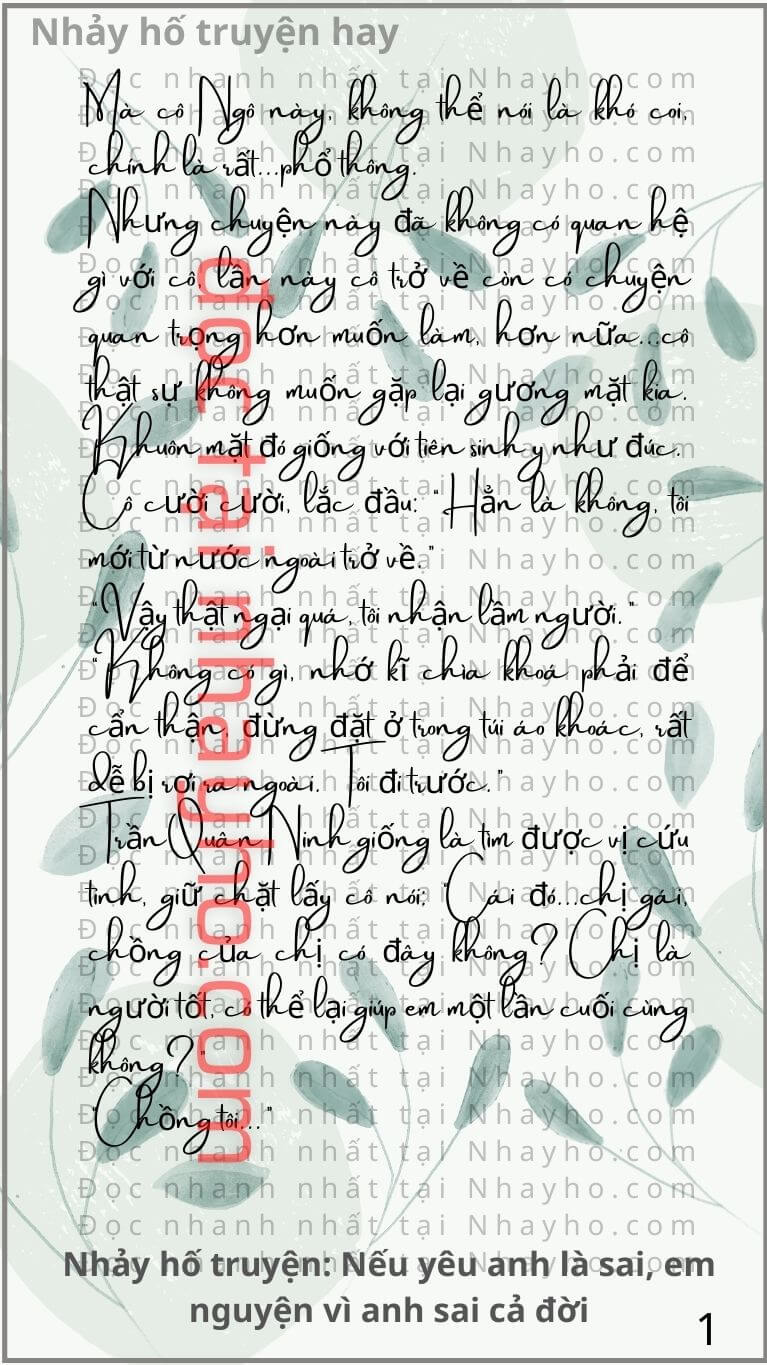 Nhảy hố truyện hay
Đọc nhanh nhất tại Nhayho.com
Mà cô Ngô này, không thể nói là khó coi,
chính là rất...phổ thông.
Nhưng chuyện này đã không có quan hệ
gì với cô, lần này cô trở về còn có chuyện
quan trọng hơn muốn làm, hơn nữa...cô
thật sự không muốn gặp lại gương mặt kia.
Khuôn mặt đó giống với tiên sinh y như đúc.
Cô cười cười, lắc đầu: "Hẳn là không, tôi
mới từ nước ngoài trở về."
"Vậy thật ngại quá, tôi nhận lầm người."
"Không có gì, nhớ kĩ chìa khoá phải để
cẩn thận, đừng đặt ở trong túi áo khoác, rất
dễ bị rơi ra ngoài. Tôi đi trước."
Trần Quân Ninh giống là tìm được vị cứu
tinh, giữ chặt lấy cô nói: "Cái đó...chị gái,
chồng của chị có đây không? Chị là
người tốt, có thể lại giúp em một lần cuối cùng
không?"
"Chồng tôi..."
đọc tại nhayho.com
Nhảy hố truyện: Nếu yêu anh là sai, em
nguyện vì anh sai cả đời
1